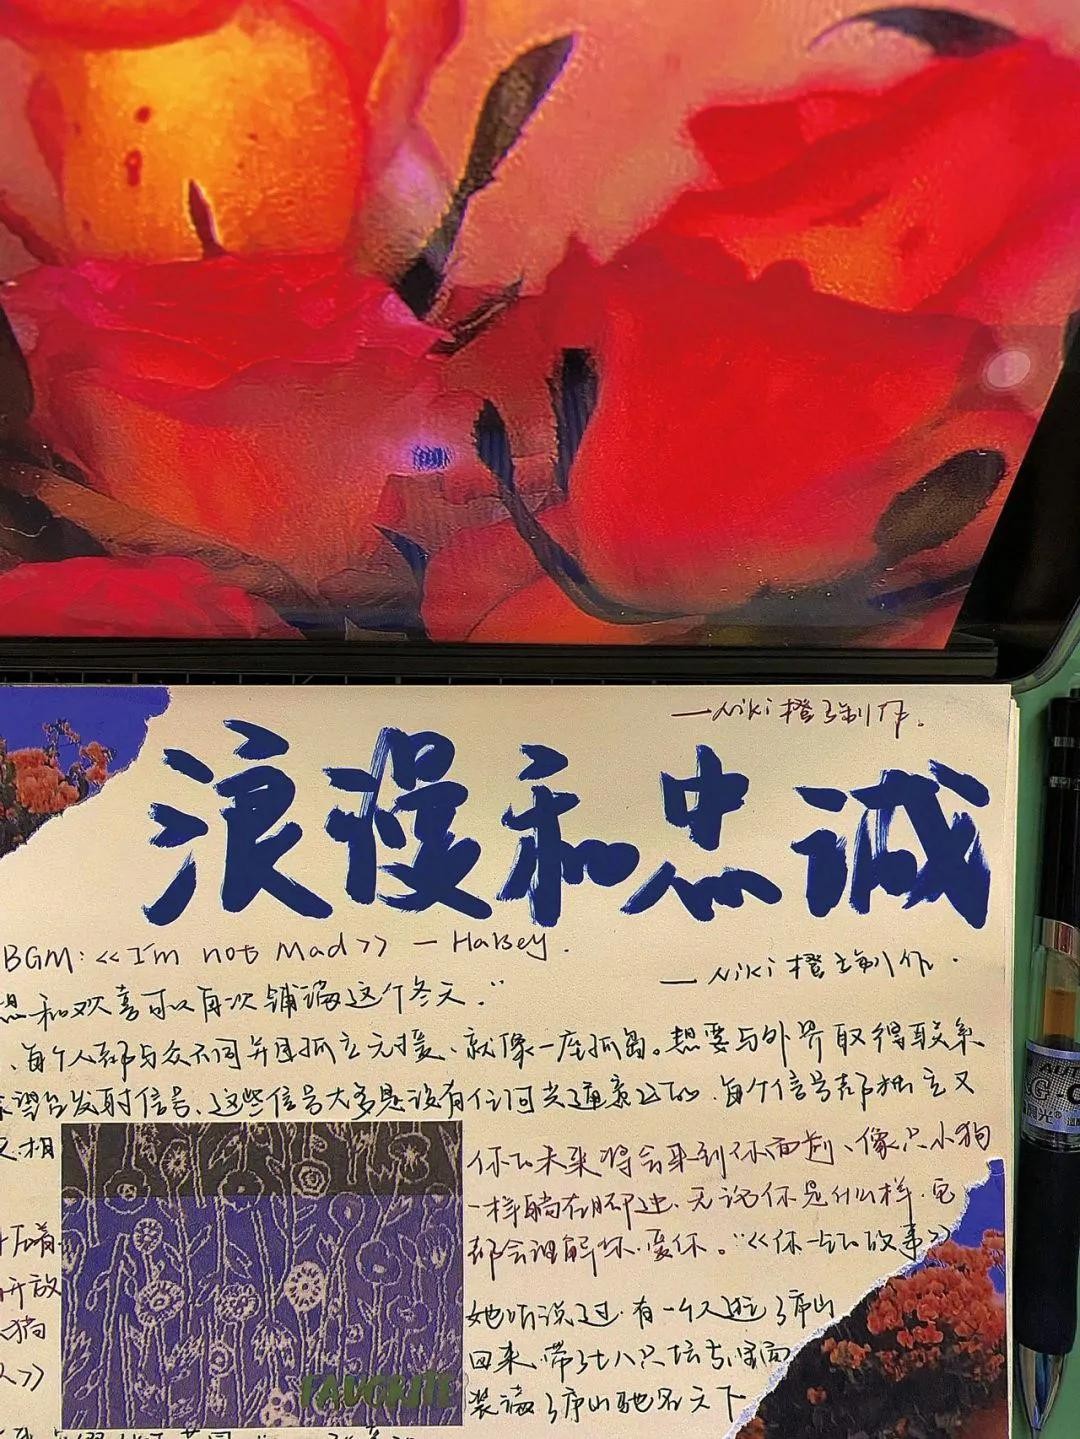 —Niki橙子制作.
浪漫和忠诚
BGM:<<I'm not Mad>> — Halsey.
—Niki橙子制作.
想和欢喜可以再次铺满这个冬天.”
、每个人都与众不同并且孤立无援、就像一座孤岛。想要与外界取得联系
望台发射信号、这些信号大多是没有任何共通意义的.每个信号都独立又
又相
你的未来将会来到你面前、像只小狗
一样躺在脚边.无论你是什么样.它
都会理解你.爱你。”<<你一生的故事>>
开放
她听说过.有一个人游了庐山
回来、带了七八只坛子、里面
装满了庐山驰名天下
FAVORITE